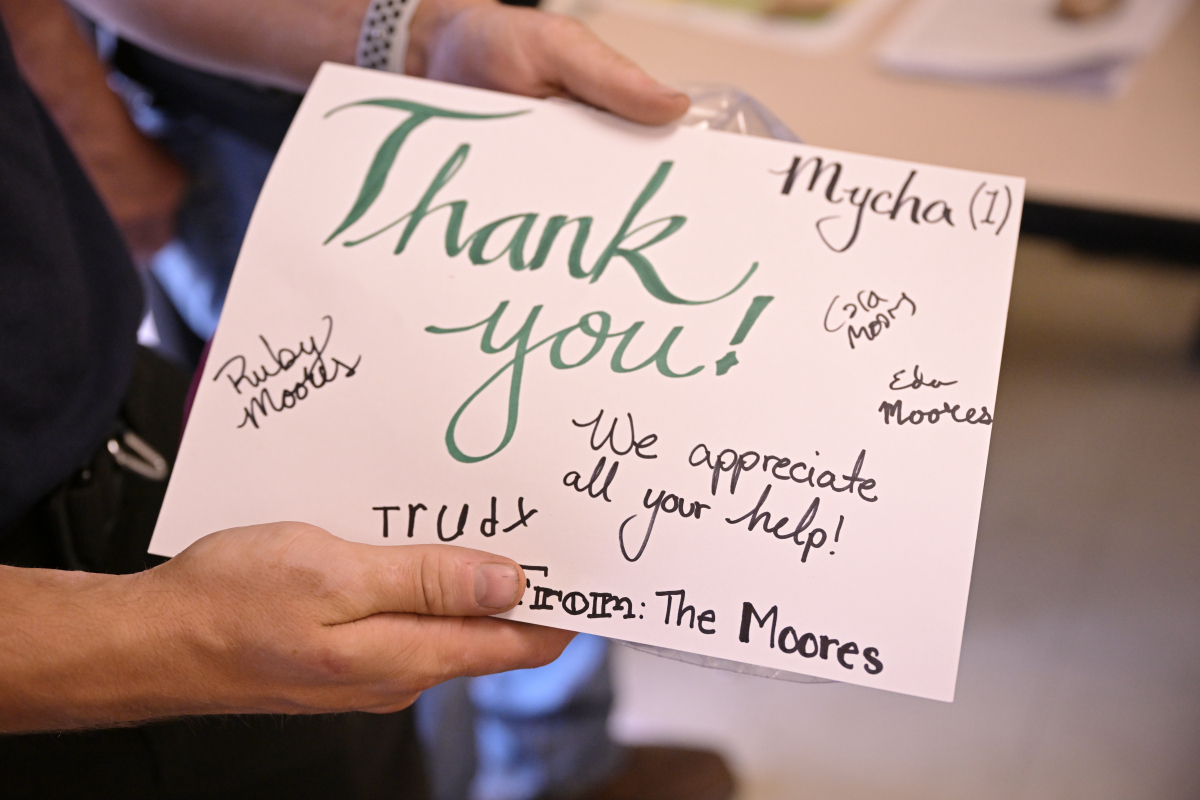 Thank
you!
Mycha (1)
Cora
Moores
Eda
Moores
Ruby
Moores
We appreciate
all your help!
Trudy
From: The Moores